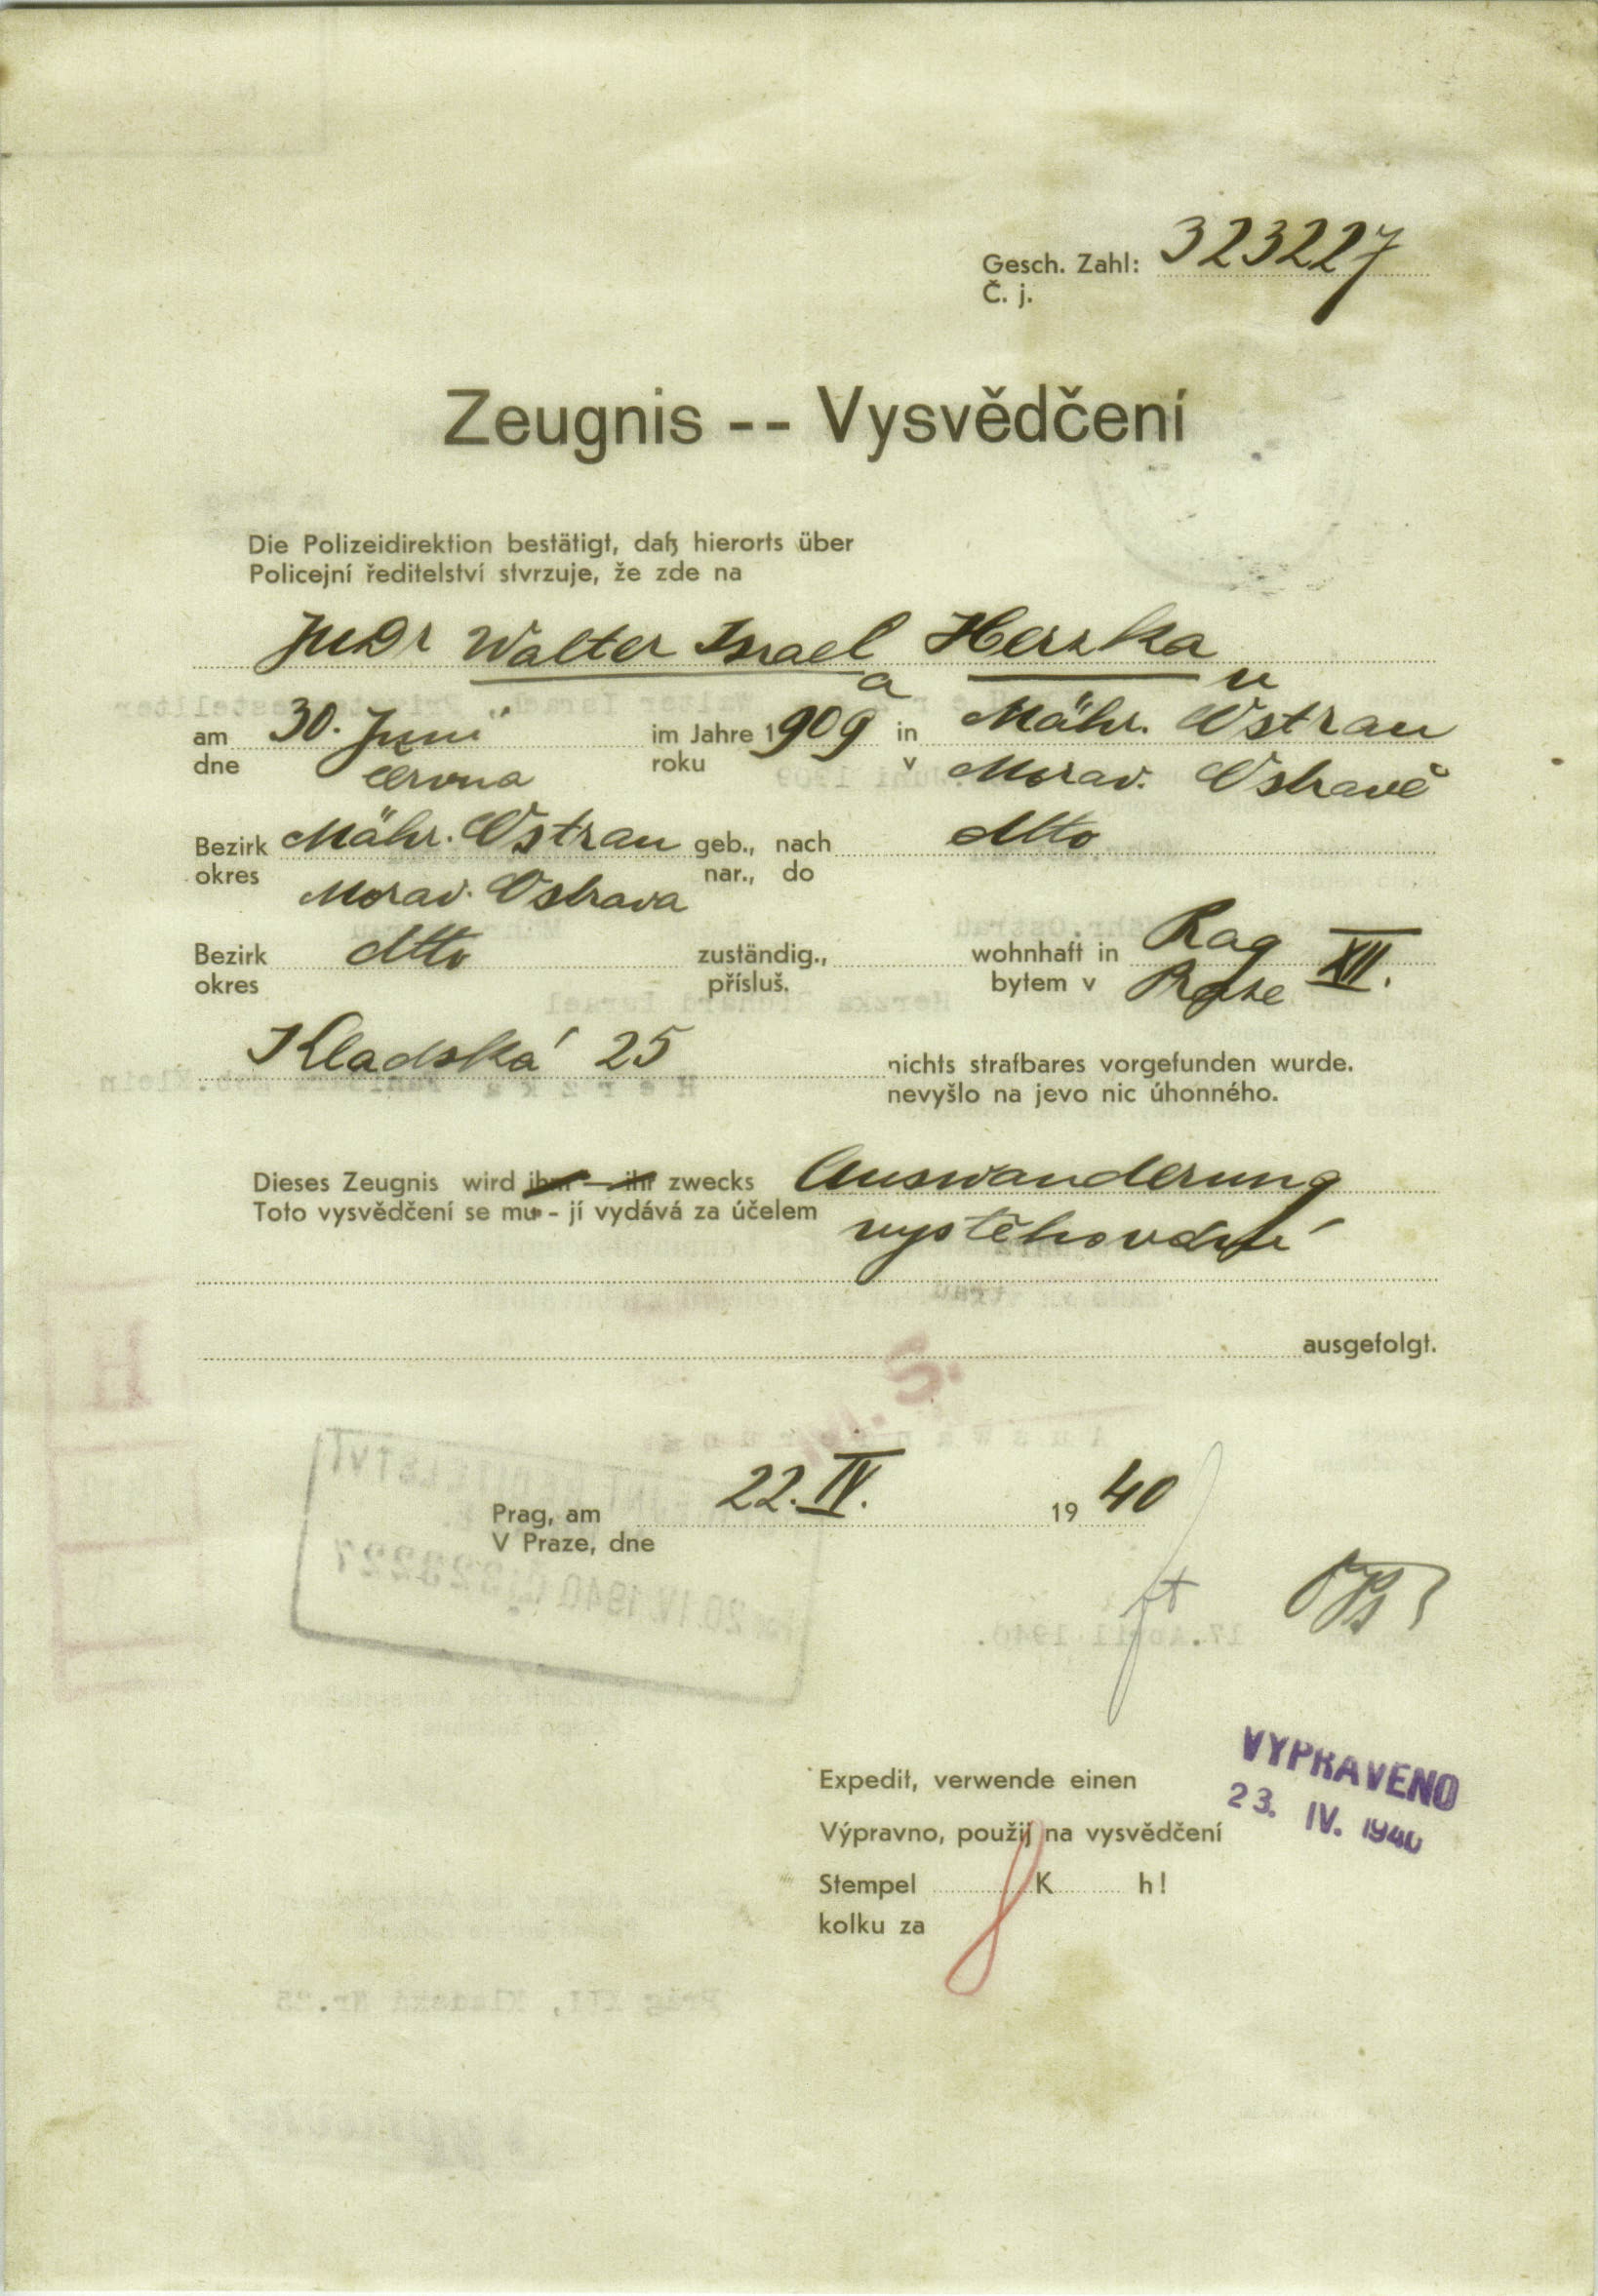 Gesch. Zahl: 323227
Č. j.
Zeugnis -- Vysvědčení
Die Polizeidirektion bestätigt, daß hierorts über
Policejní ředitelství stvrzuje, že zde na
JUDr Walter Israel Herzka
a u
am 30. Juni im Jahre 1909 in Mähr. Ostrau
dne června roku v Morav. Ostravě
Bezirk Mähr. Ostrau geb., nach dtto
okres Morav. Ostrava nar., do
Bezirk dtto zuständig., wohnhaft in Prag XII.
okres přísluš. bytem v Praze
Kladská 25 nichts strafbares vorgefunden wurde.
nevyšlo na jevo nic úhonného.
Dieses Zeugnis wird ihm - ihr zwecks Auswanderung
Toto vysvědčení se mu - jí vydává za účelem vystěhování
ausgefolgt.
Prag, am 22. IV. 1940
V Praze, dne
Expedit, verwende einen
VYPRAVENO
23. IV. 1940
Výpravno, použij na vysvědčení
Stempel K h!
kolku za